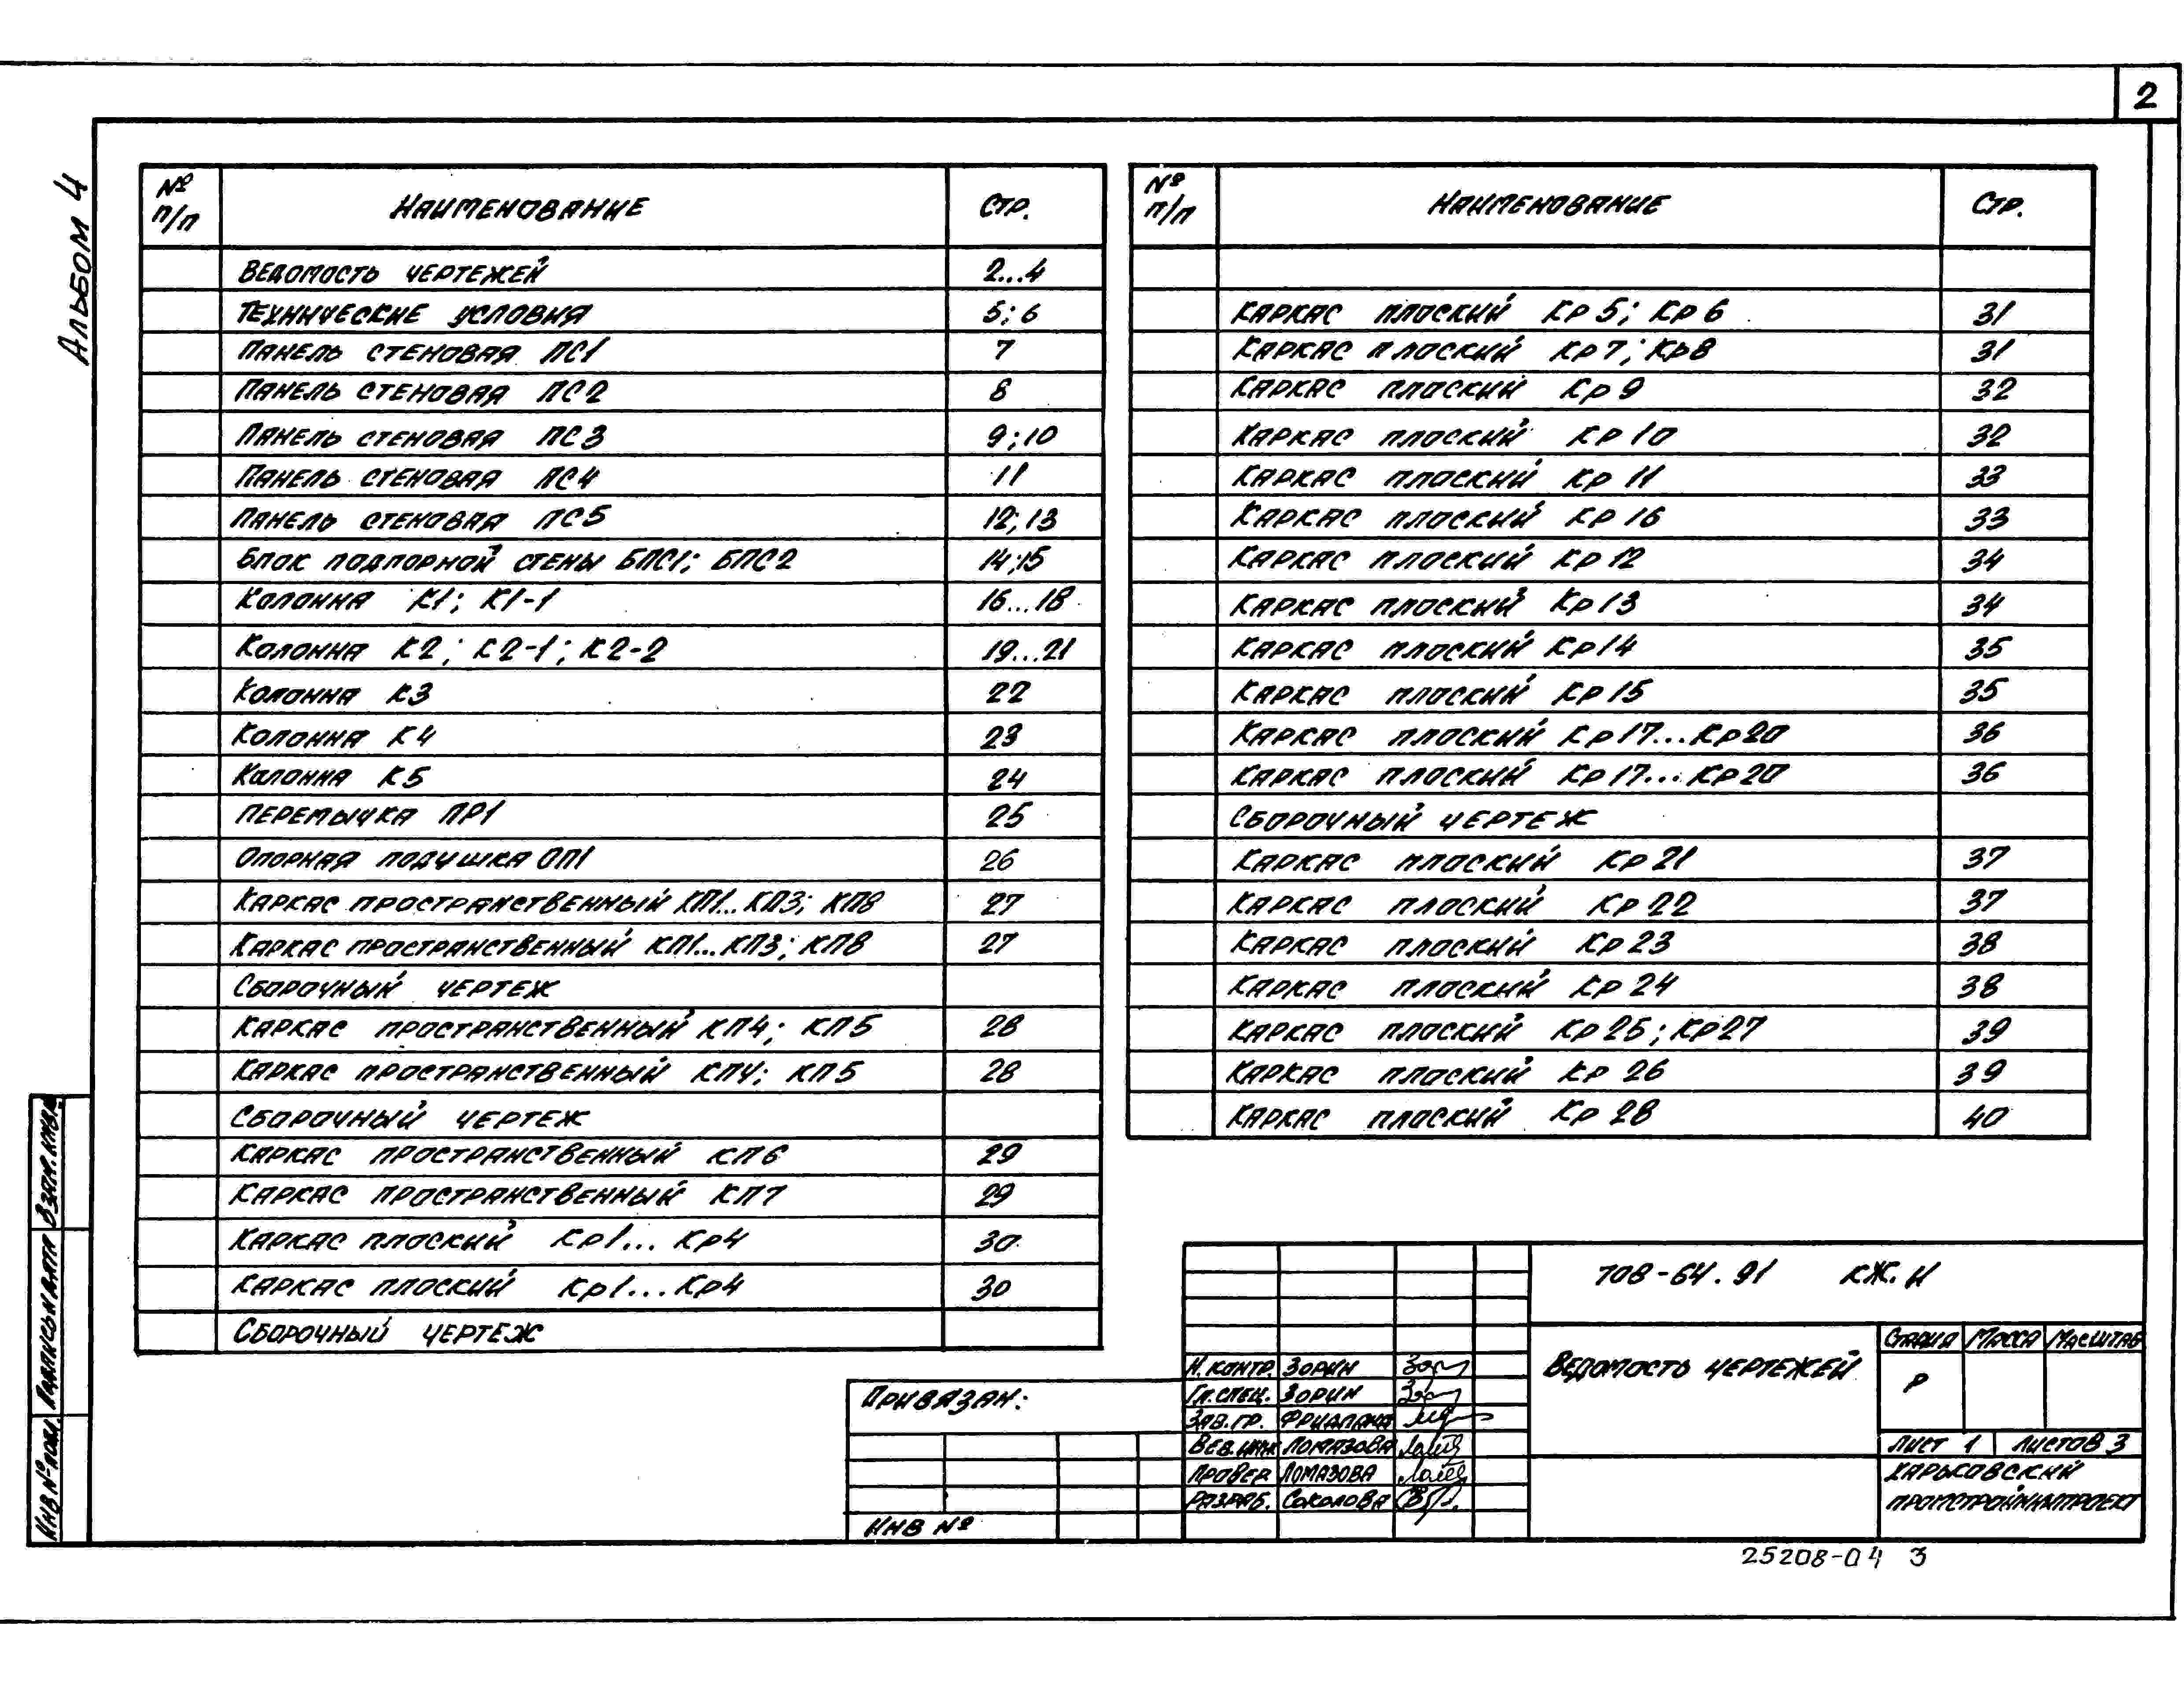 2
Альбом 4
№ п/п Наименование Стр.
Ведомость чертежей 2...4
Технические условия 5; 6
Панель стеновая ПС1 7
Панель стеновая ПС2 8
Панель стеновая ПС3 9; 10
Панель стеновая ПС4 11
Панель стеновая ПС5 12; 13
Блок подпорной стены БПС1; БПС2 14; 15
Колонна К1; К1-1 16...18
Колонна К2; К2-1; К2-2 19...21
Колонна К3 22
Колонна К4 23
Колонна К5 24
Перемычка ПР1 25
Опорная подушка ОП1 26
Каркас пространственный КП1...КП3; КП8 27
Каркас пространственный КП1...КП3; КП8 27
Сборочный чертеж
Каркас пространственный КП4; КП5 28
Каркас пространственный КП4; КП5 28
Сборочный чертеж
Каркас пространственный КП6 29
Каркас пространственный КП7 29
Каркас плоский Кр1...Кр4 30
Каркас плоский Кр1...Кр4 30
Сборочный чертеж
№ п/п Наименование Стр.
Каркас плоский Кр5; Кр6 31
Каркас плоский Кр7; Кр8 31
Каркас плоский Кр9 32
Каркас плоский Кр10 32
Каркас плоский Кр11 33
Каркас плоский Кр16 33
Каркас плоский Кр12 34
Каркас плоский Кр13 34
Каркас плоский Кр14 35
Каркас плоский Кр15 35
Каркас плоский Кр17...Кр20 36
Каркас плоский Кр17...Кр20 36
Сборочный чертеж
Каркас плоский Кр21 37
Каркас плоский Кр22 37
Каркас плоский Кр23 38
Каркас плоский Кр24 38
Каркас плоский Кр25; Кр27 39
Каркас плоский Кр26 39
Каркас плоский Кр28 40
Взам.инв.
Подпись и дата
Инв № подл.
Привязан:
Инв №
Н.контр. Зорин
Гл.спец. Зорин
Зав.гр. Фридланд
Вед.инж Ломазова
Провер Ломазова
Разраб. Соколова
708-64.91 КЖ.И
Ведомость чертежей
Стадия Масса Масштаб
Р
Лист 1 Листов 3
Харьковский
Промстройниипроект
25208-04 3